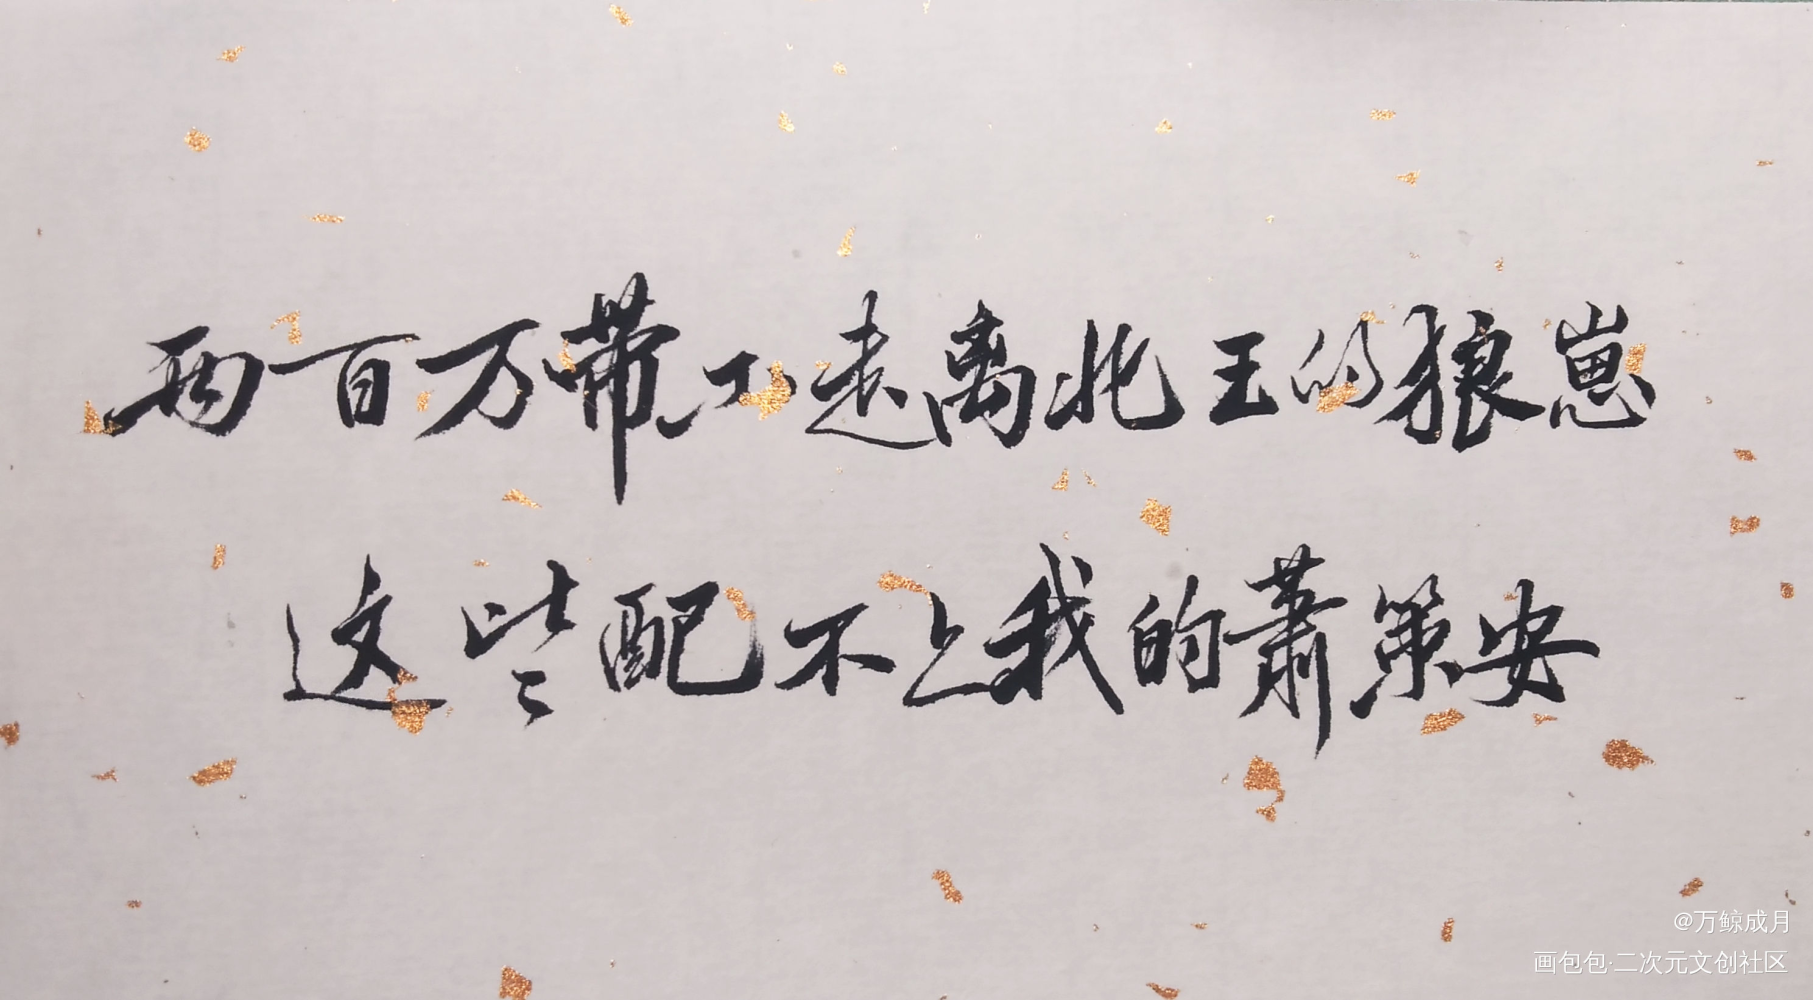 两百万带不走离北王的狼崽
这些配不上我的萧策安
@万鲸成月
画包包·二次元文创社区